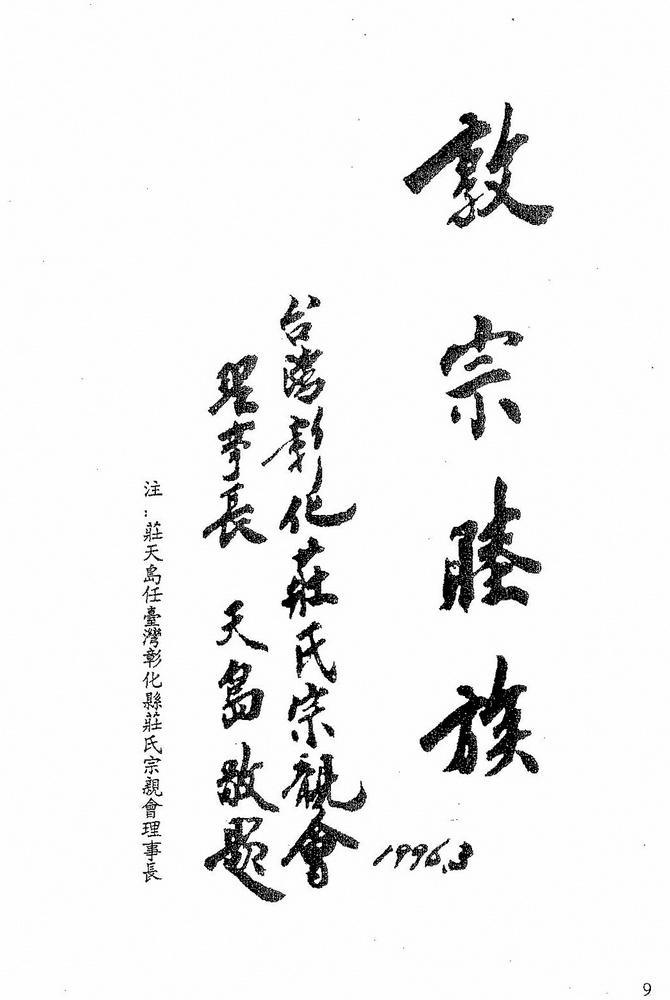 敦宗睦族
1996.3
台灣彰化莊氏宗親會
理事長 天島敬題
注：莊天島任臺灣彰化縣莊氏宗親會理事長
9